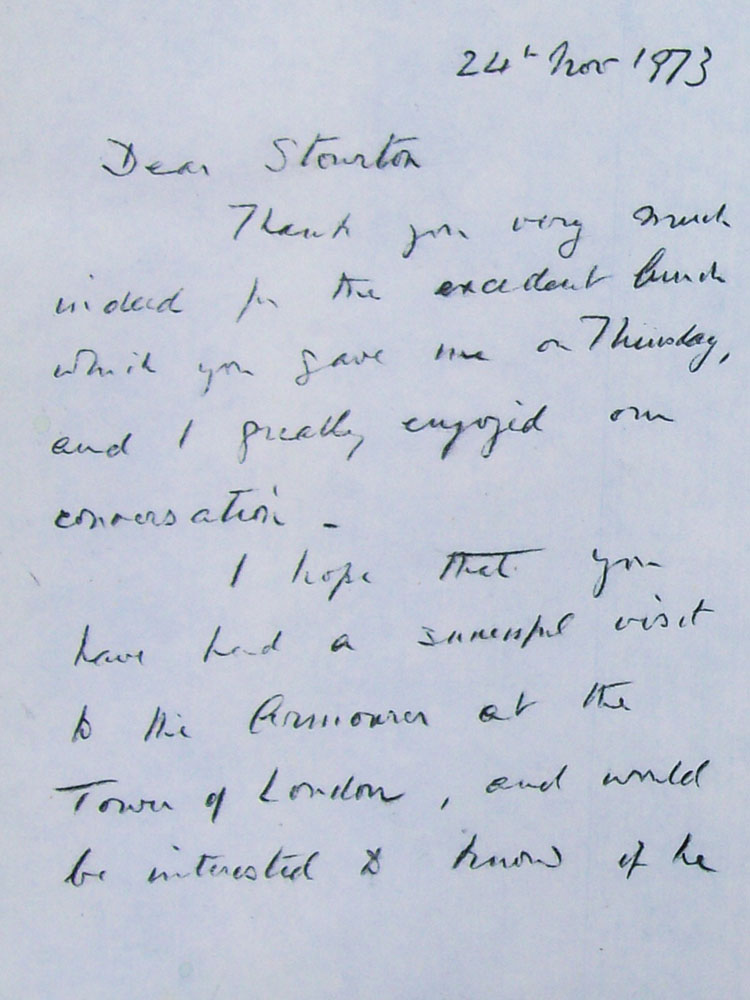 24th Nov 1973
Dear Stourton
Thank you very much
indeed for the excellent lunch
which you gave me on Thursday,
and I greatly enjoyed our
conversation -
I hope that you
have had a successful visit
to the Armourer at the
Tower of London, and would
be interested to know if he